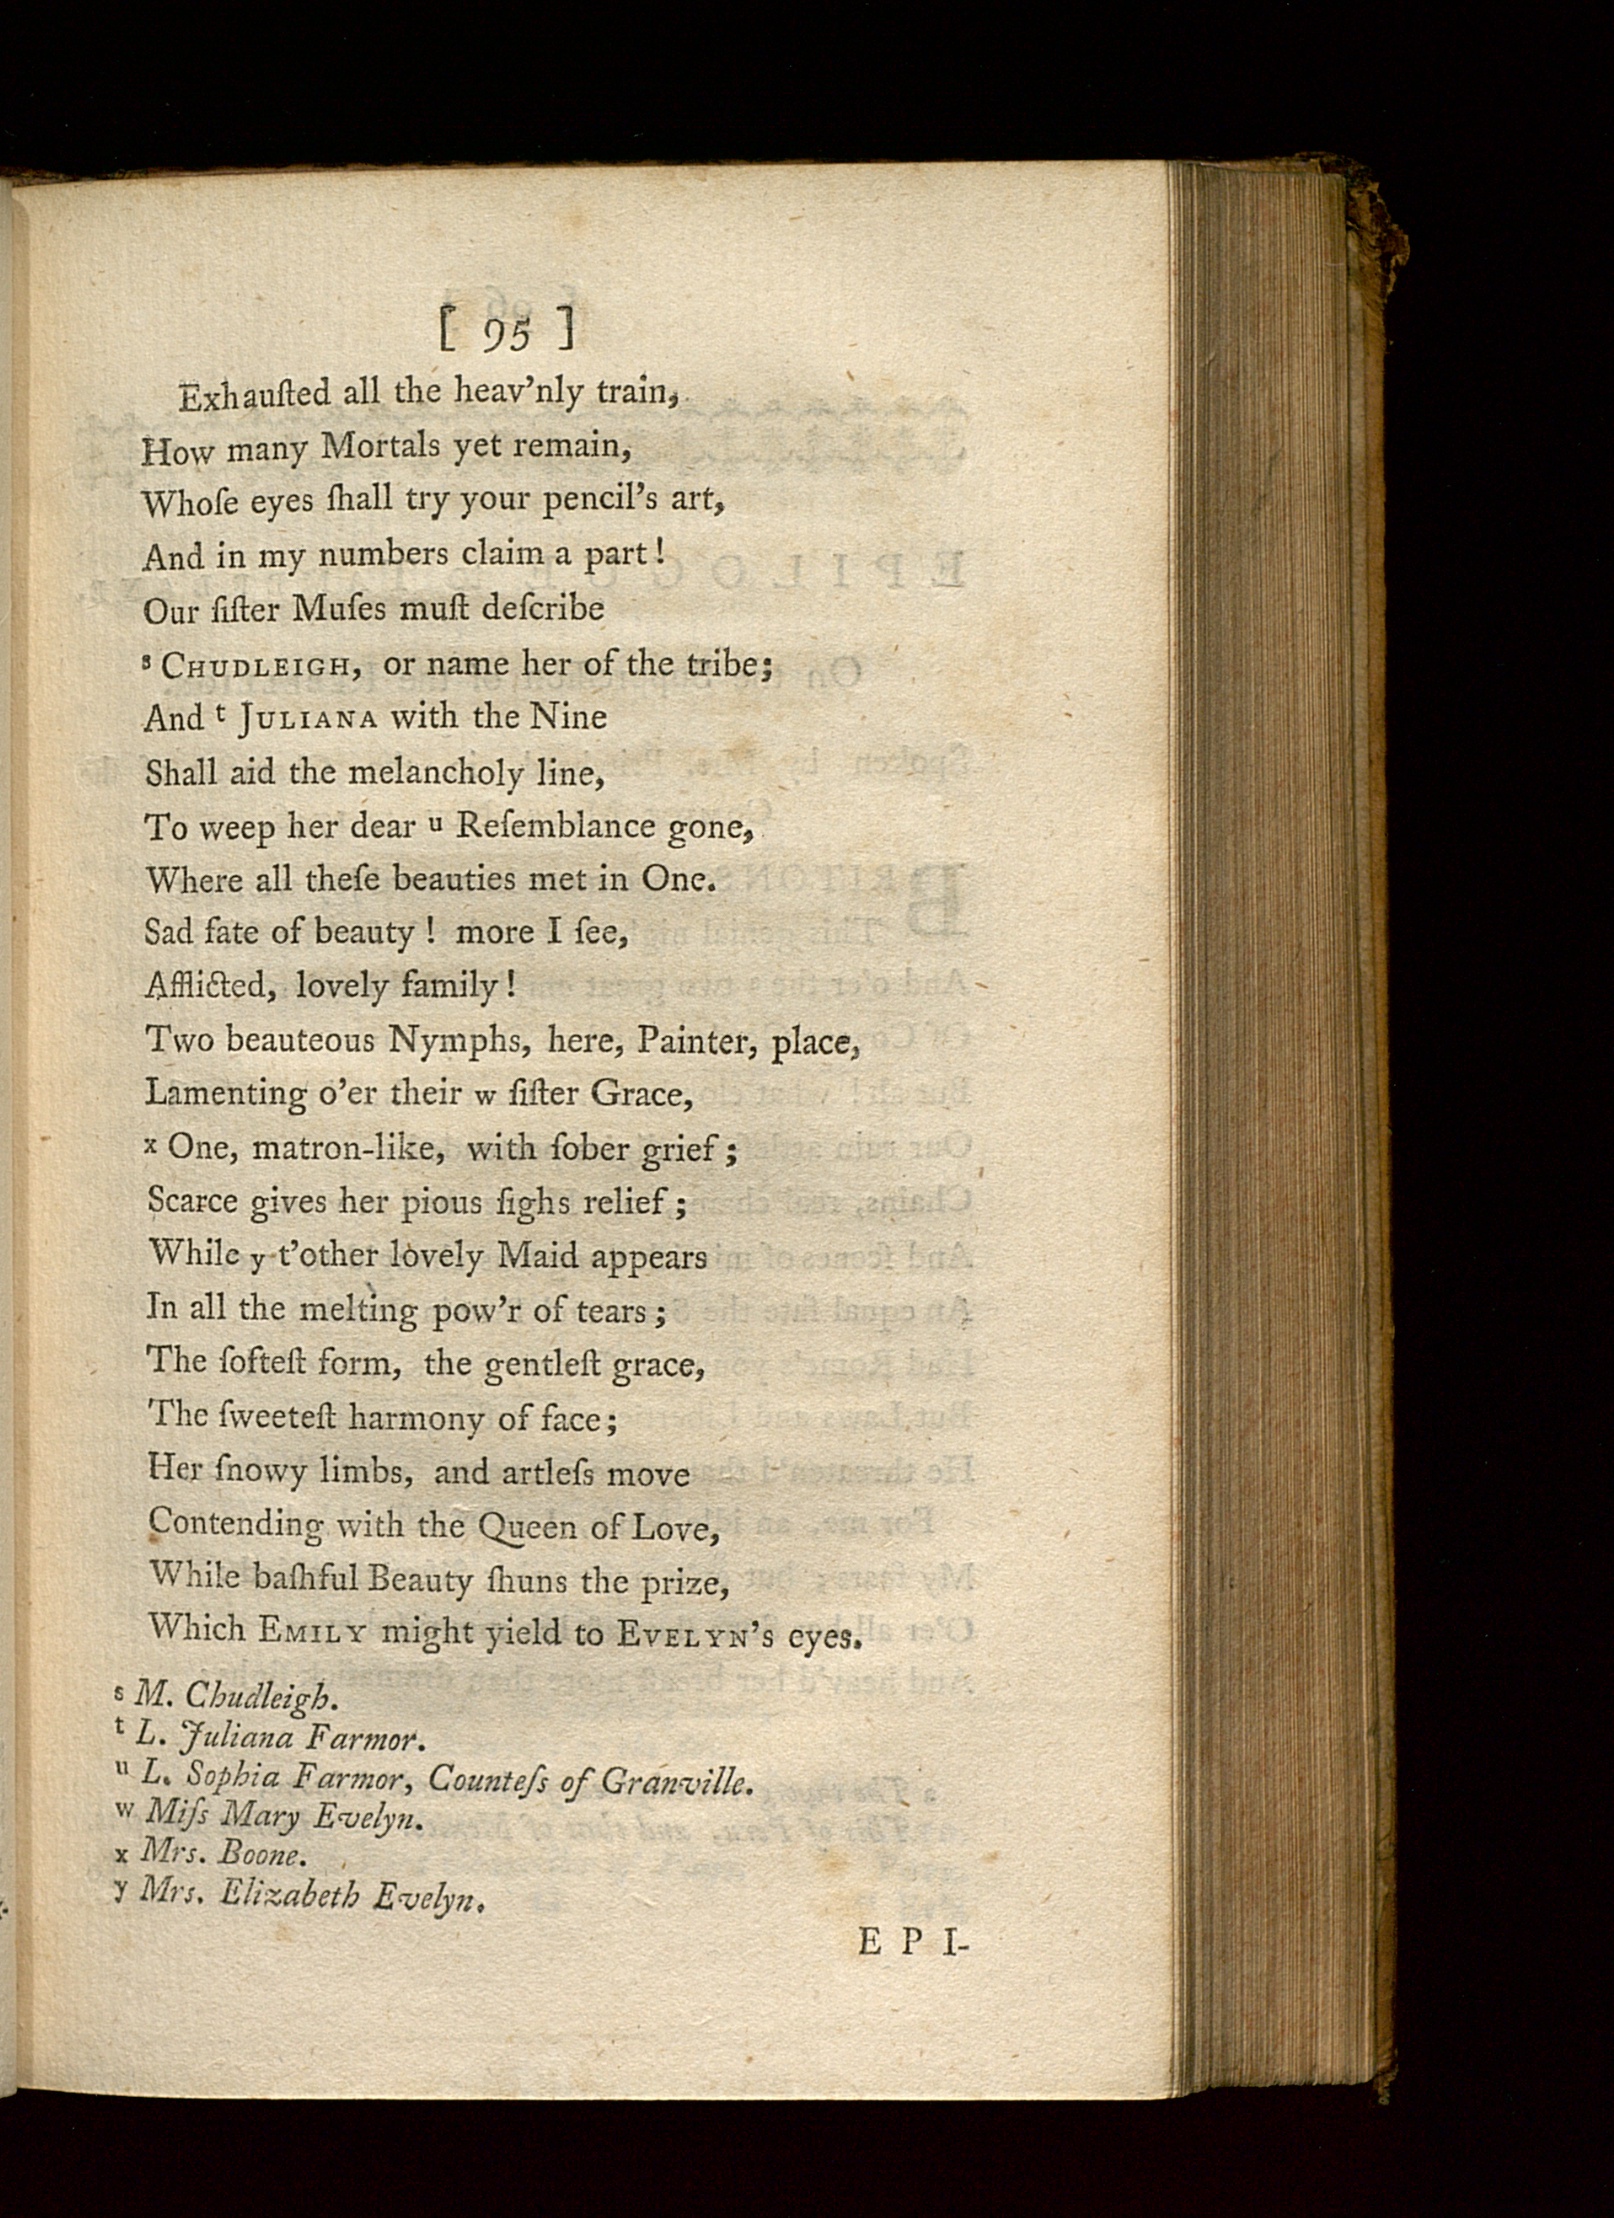 [ 95 ]
Exhauſted all the heav'nly train,
How many Mortals yet remain,
Whoſe eyes ſhall try your pencil's art,
And in my numbers claim a part!
Our ſiſter Muſes muſt deſcribe
s CHUDLEIGH, or name her of the tribe;
And t JULIANA with the Nine
Shall aid the melancholy line,
To weep her dear u Reſemblance gone,
Where all theſe beauties met in One.
Sad fate of beauty! more I ſee,
Afflicted, lovely family!
Two beauteous Nymphs, here, Painter, place,
Lamenting o'er their w ſiſter Grace,
x One, matron-like, with ſober grief;
Scarce gives her pious ſighs relief;
While y t'other lovely Maid appears
In all the melting pow'r of tears;
The ſofteſt form, the gentleſt grace,
The ſweeteſt harmony of face;
Her ſnowy limbs, and artleſs move
Contending with the Queen of Love,
While baſhful Beauty ſhuns the prize,
Which EMILY might yield to EVELYN's eyes.
s M. Chudleigh.
t L. Juliana Farmor.
u L. Sophia Farmor, Counteſs of Granville.
w Miſs Mary Evelyn.
x Mrs. Boone.
y Mrs. Elizabeth Evelyn.
E P I-